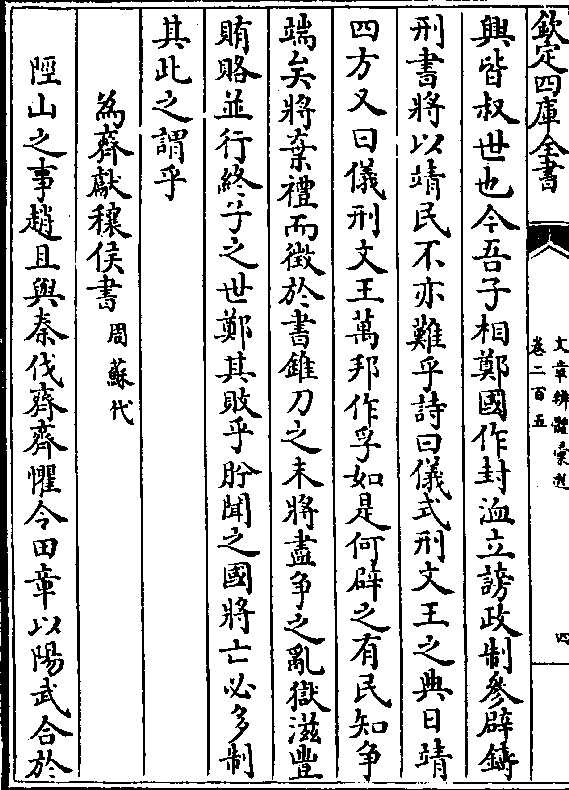 欽定四庫全書
文章辨體彙選
卷二百五
四
興皆叔世也今吾子相鄭國作封洫立謗政制參辟鑄
刑書將以靖民不亦難乎詩曰儀式刑文王之典日靖
四方又曰儀刑文王萬邦作孚如是何辟之有民知争
端矣將棄禮而徴於書錐刀之末將盡争之亂獄滋豐
賄賂並行終子之世鄭其敗乎肸聞之國將亡必多制
其此之謂乎
為齊獻穰侯書 周蘇代
陘山之事趙且與秦伐齊齊懼令田章以陽武合於